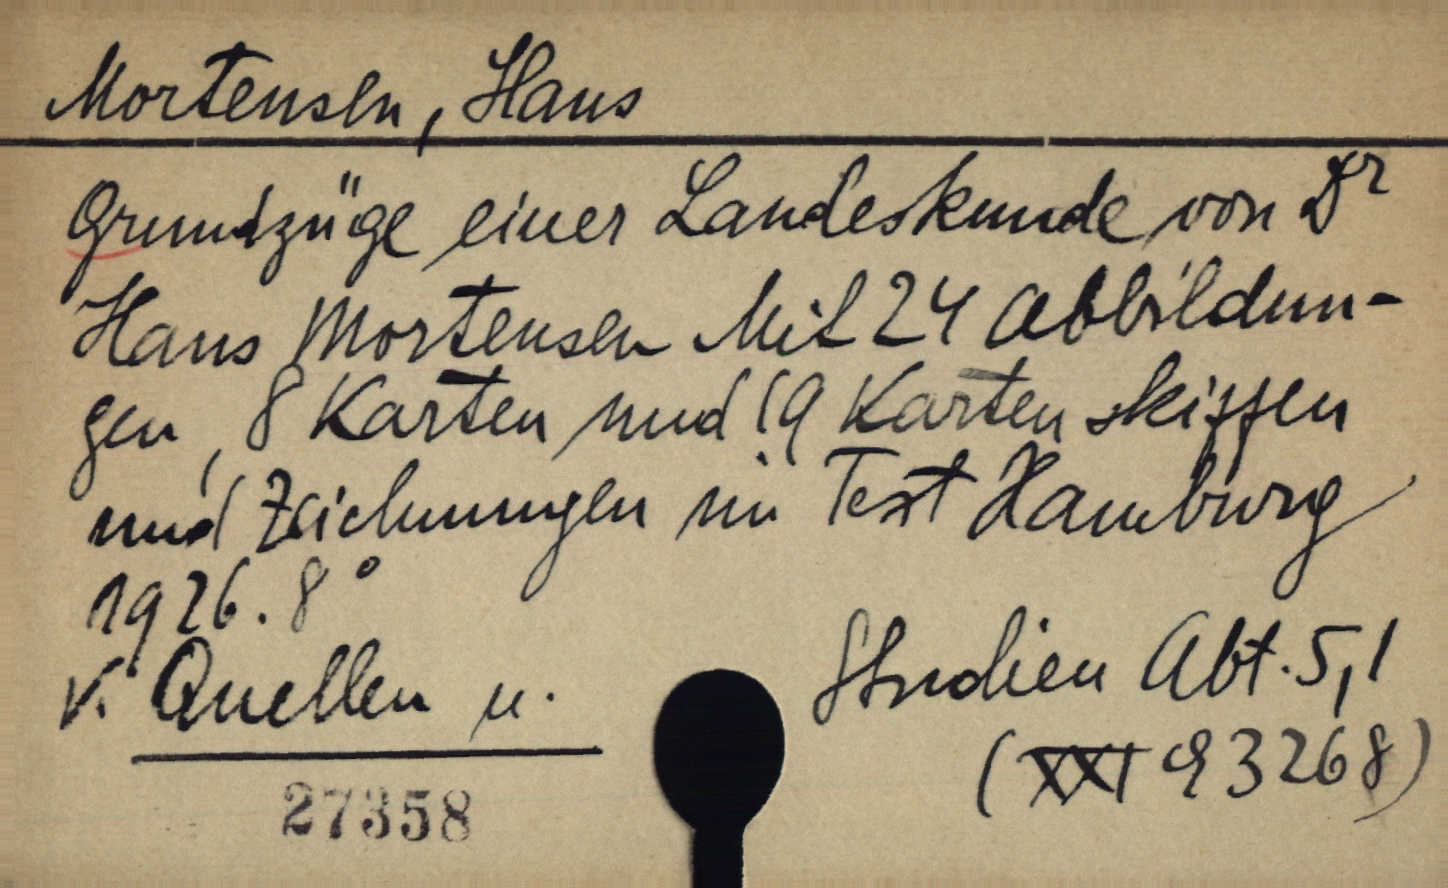 Mortensen, Hans
Grundzüge einer Landeskunde von Dr
Hans Mortensen Mit 24 Abbildun-
gen, 8 Karten und 19 Karten skizzen
und Zeichnungen im Text Hamburg
1926. 8°
v. Quellen u. Studien Abt. 5,1
(XXI 93268)
27358